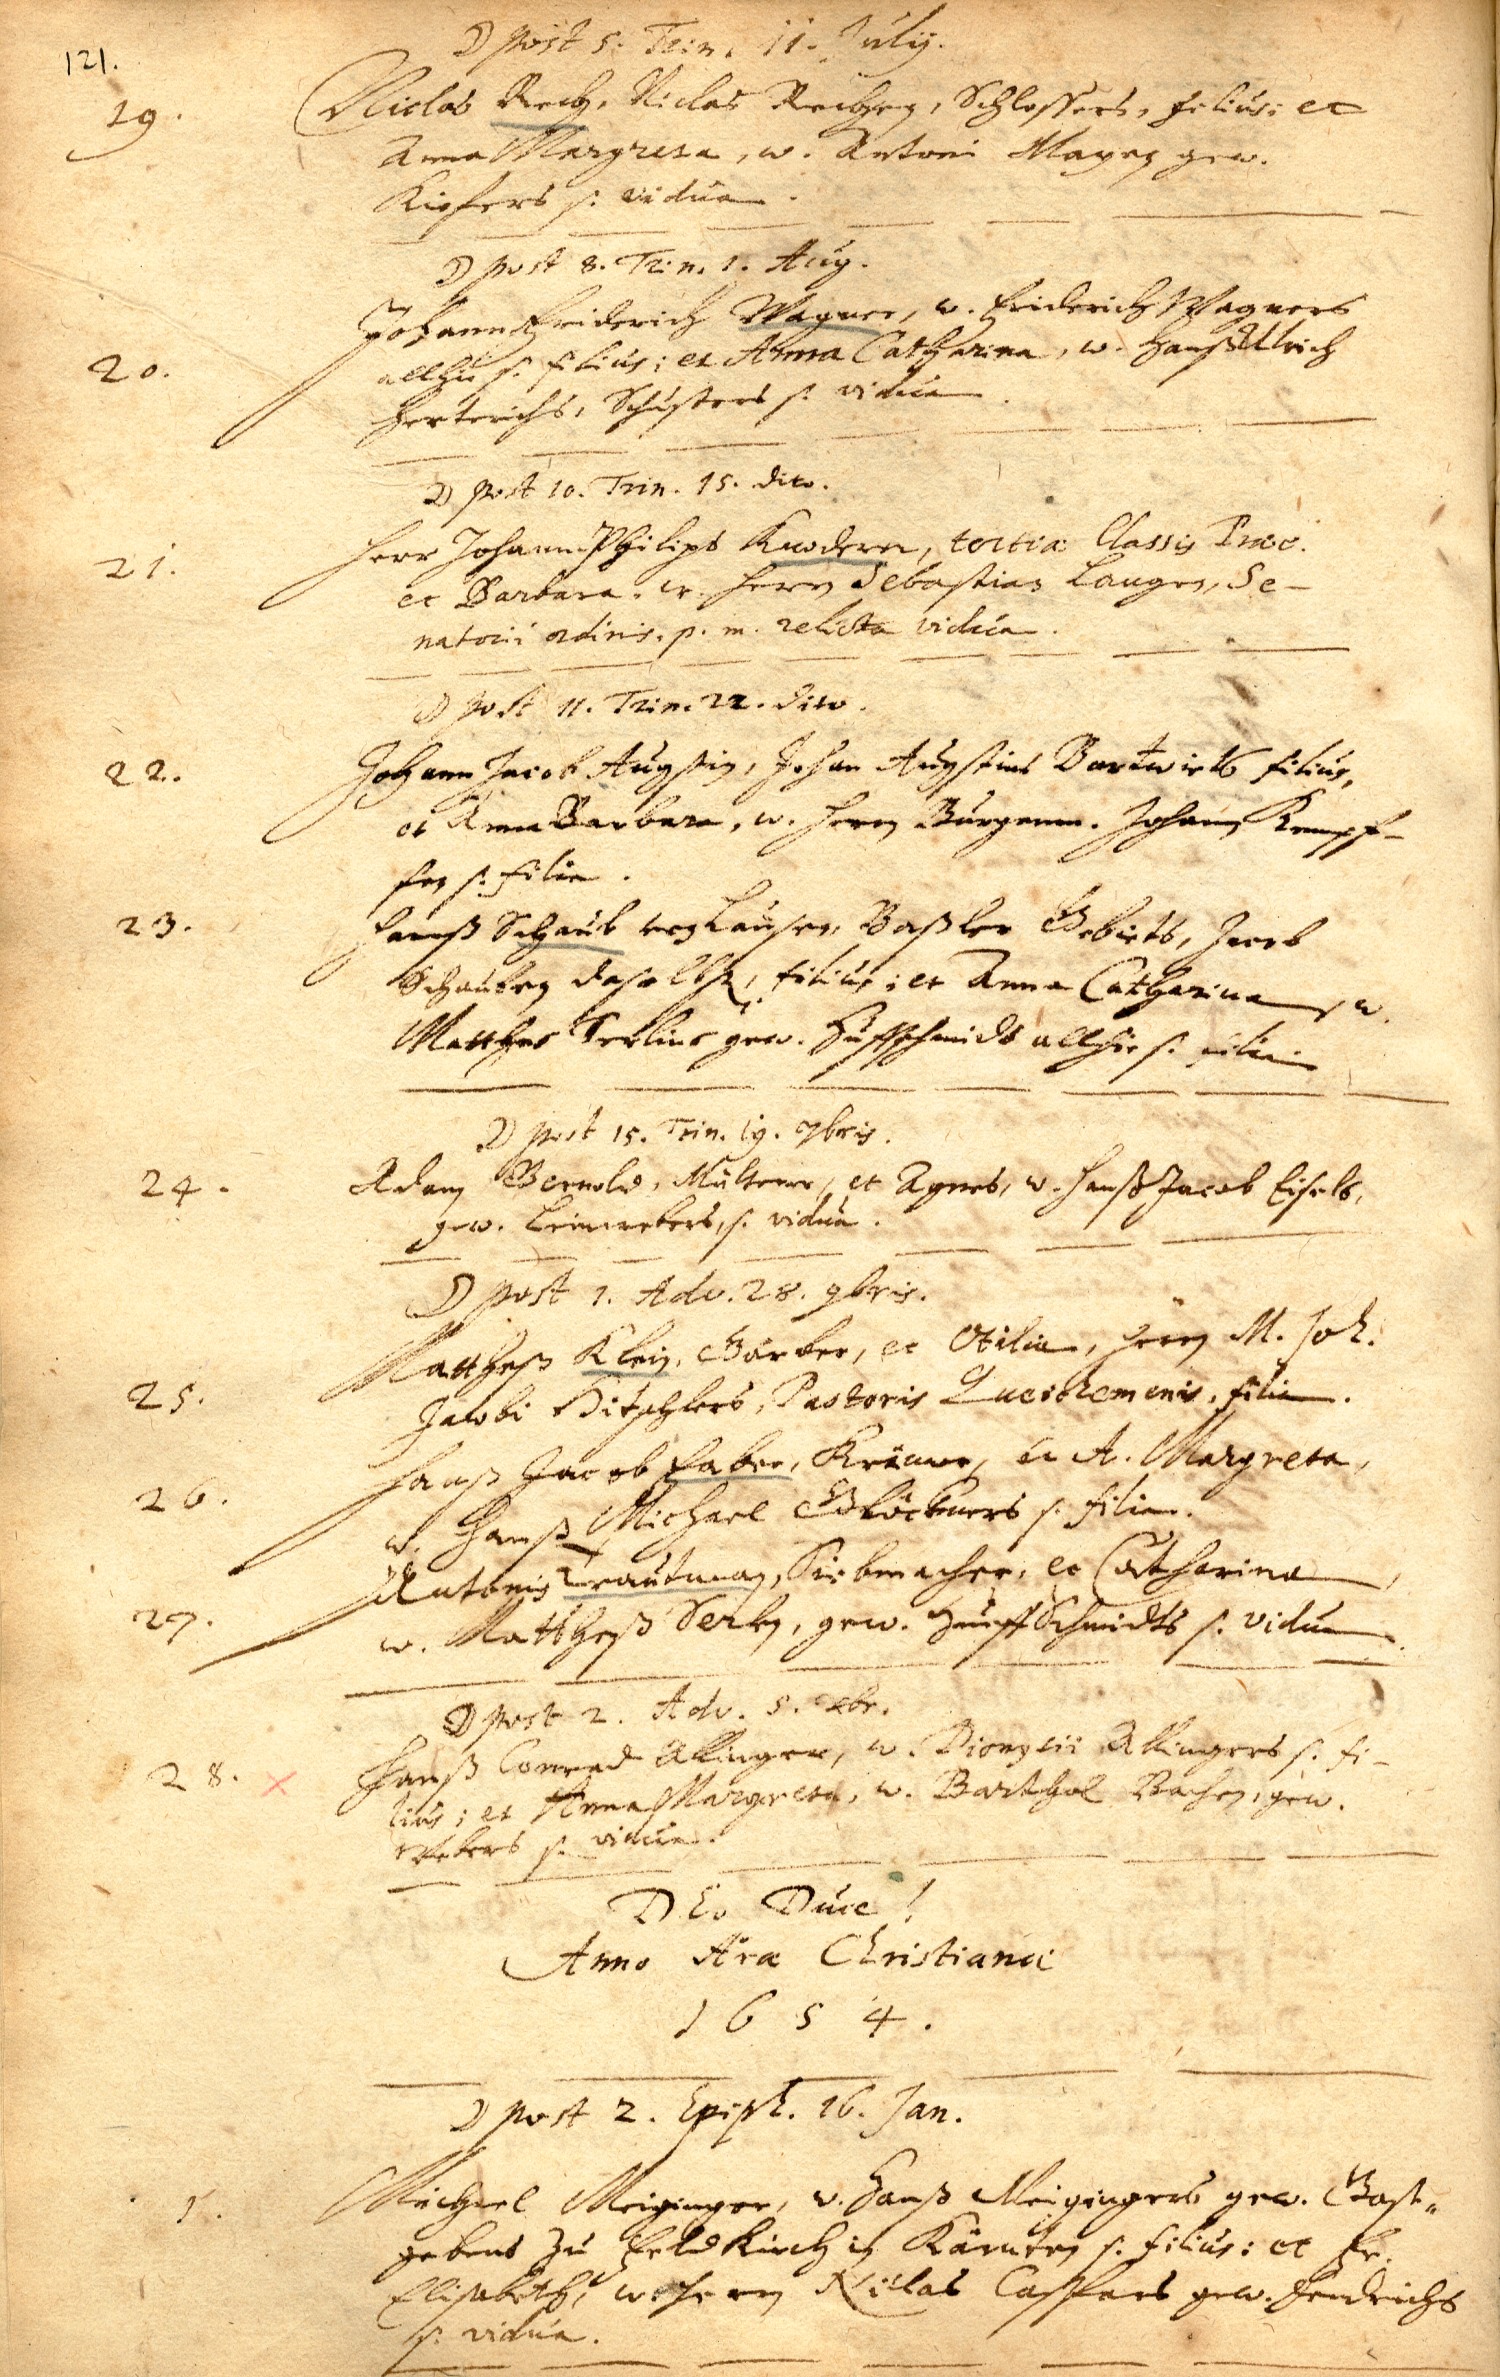 121.
D post 5. Trin. 11. Julij.
19. Niclas Rech, Niclas Rechen, Schlossers, filius; et
Anna Margreta, w. Antoni Mayen gew.
Kiefers s. vidua.
D post 8. Trin. 1. Aug.
Johann Friderich Wagner, w. Friderich Wagners
20. allhie s. filius; et Anna Catharina, w. Hanß Ulrich
Herterichs, Schusters s. vidua.
D post 10. Trin. 15. dito.
21. Herr Johann Philips Knoderer, tertiæ Classis Præc.
et Barbara, w. Herrn Sebastian Langen, Se-
natorii ordinis. p. m. relicta vidua.
D post 11. Trin. 22. dito.
22. Johann Jacob Augstin, Johan Augstins filius,
et Anna Barbara, w. Herrn Burgerm. Johann Kempf-
fen s. filia.
23. Hanß Schaub von Lausen, Baßler Gebiets, Jacob
Schauben daselbst, filius; et Anna Catharina, w.
Matthes Serlins gew. Huffschmidts allhie s. filia.
D post 15. Trin. 19. 7bris.
24. Adam Bernold, Mülterer, et Agnes, w. Hanß Jacob Eisels,
gew. Leinwebers, s. vidua.
D post 1. Adv. 28. 9bris.
Mattheß Klein, Gärber, et Otilia, Herrn M. Joh.
25. Jacobi Pastoris filia.
26. Hanß Jacob Faber, Krämer, et A. Margreta,
w. Hanß Michael Glöckners s. filia.
Antonis Trautman, Siebmacher, et Catharina,
27. w. Mattheß Serlin, gew. Hueffschmidts s. vidua.
D post 2. Adv. 5. Xbr.
28. Hanß Conrad Allinger, w. Dionysii Allingers s. fi-
lius; et Anna Margreta, w. Barthol Bachen, gew.
Webers s. vidua.
DEo Duce!
Anno Æræ Christianæ
1654.
D post 2. Epiph. 16. Jan.
1. Michael Meiginger, w. Hanß Meigingers gew. Gast-
gebens zu Feldkirch in Kärnten s. filius; et Fr.
Elisabeth, w. Herrn Niclas Caspars gew. Fendrichs
s. vidua.